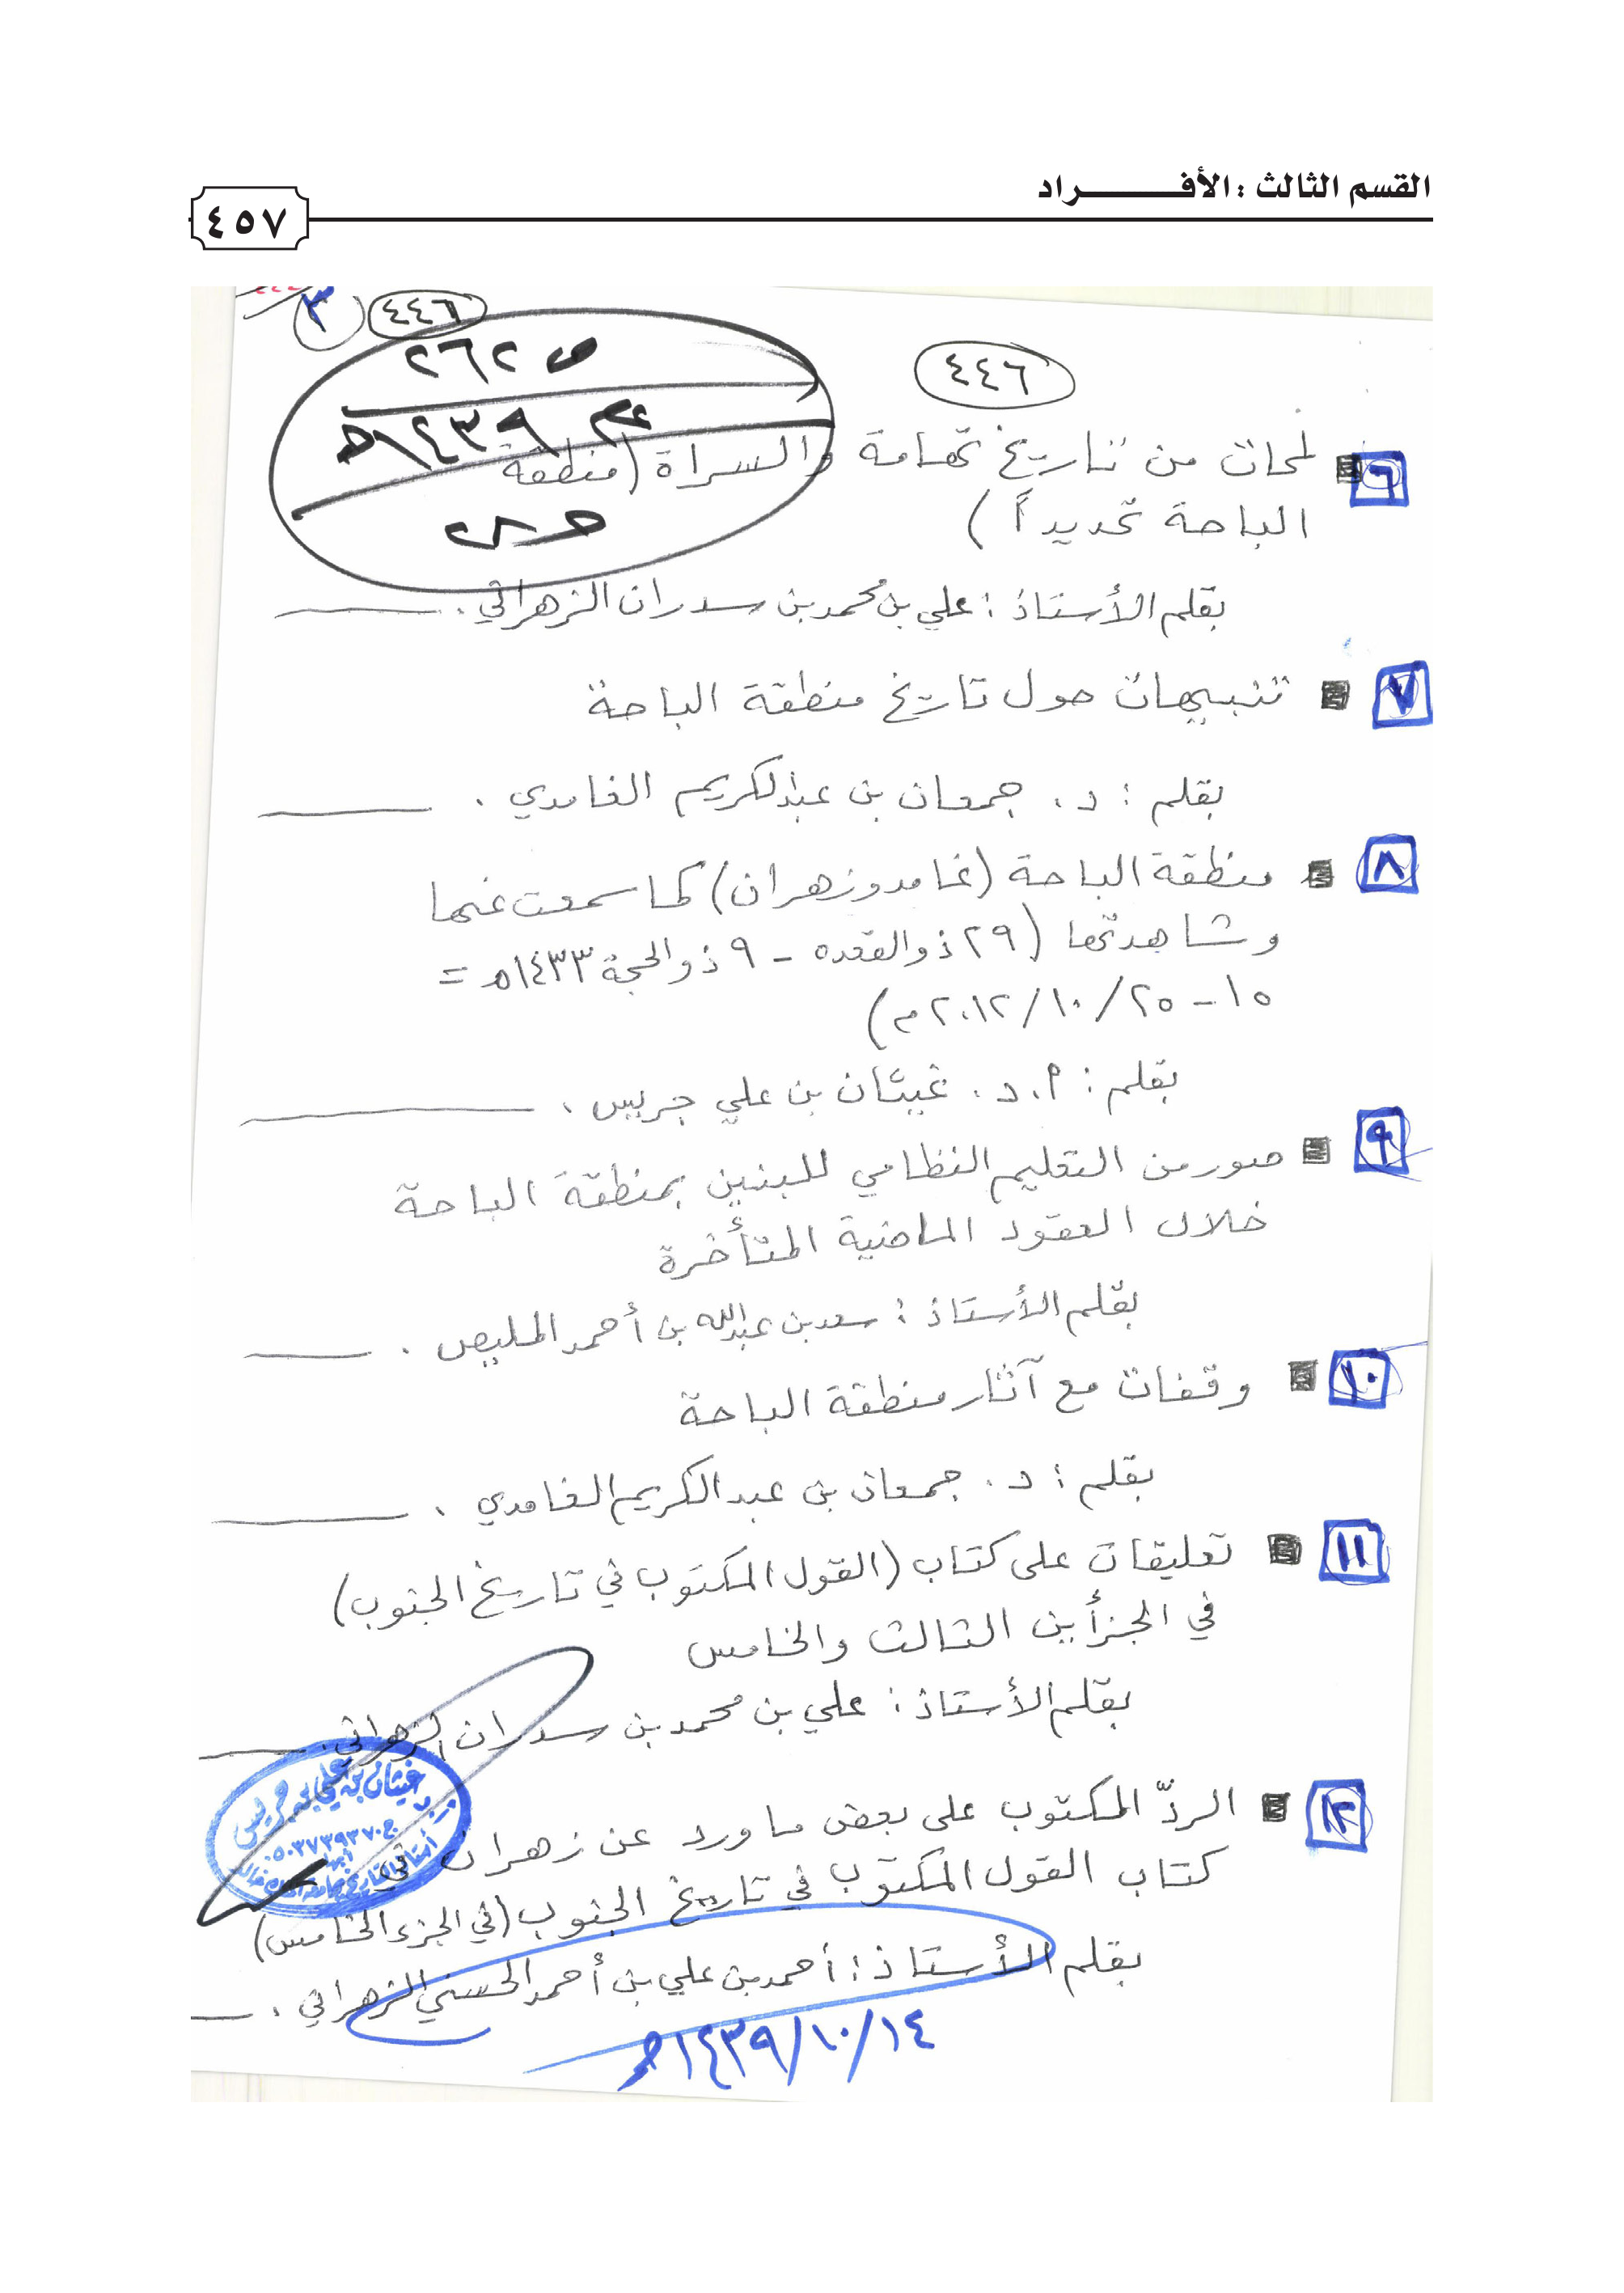 القسم الثالث : الأفـــــــراد
٤٥٧
٤٤٦
٣
٤٤٦
ص ٢٦٢
١٤٣٩هـ
٦ لمحات من تاريخ تهامة والسراة (منطقة
الباحة تحديداً)
بقلم الأستاذ : علي بن محمد بن سدران الزهراني .
٧ تنبيهات حول تاريخ منطقة الباحة
بقلم : د . جمعان بن عبدالكريم الغامدي .
٨ منطقة الباحة (غامد وزهران) كما سمعت عنها
وشاهدتها (٢٩ ذو القعده - ٩ ذو الحجة ١٤٣٣هـ =
١٥ - ٢٥ /١٠ /٢٠١٢م)
بقلم : أ . د . غيثان بن علي جريس .
٩ صور من التعليم النظامي للبنين بمنطقة الباحة
خلال العقود الماضية المتأخرة
بقلم الأستاذ : سعد بن عبدالله بن أحمد المليص .
١٠ وقفات مع آثار منطقة الباحة
بقلم : د . جمعان بن عبد الكريم الغامدي .
١١ تعليقات على كتاب (القول المكتوب في تاريخ الجنوب)
في الجزأين الثالث والخامس
بقلم الأستاذ : علي بن محمد بن سدران الزهراني .
١٢ الردّ المكتوب على بعض ما ورد عن زهران في
كتاب القول المكتوب في تاريخ الجنوب (في الجزء الخامس)
بقلم الأستاذ : أحمد بن علي بن أحمد الحسني الزهراني .
أ.د. غيثان بن علي بن جريس
ج ٠٥٠٣٧٣٩٣٧٠
أبها
أستاذ التاريخ بجامعة الملك خالد
١٤٣٩/١٠/١٤هـ